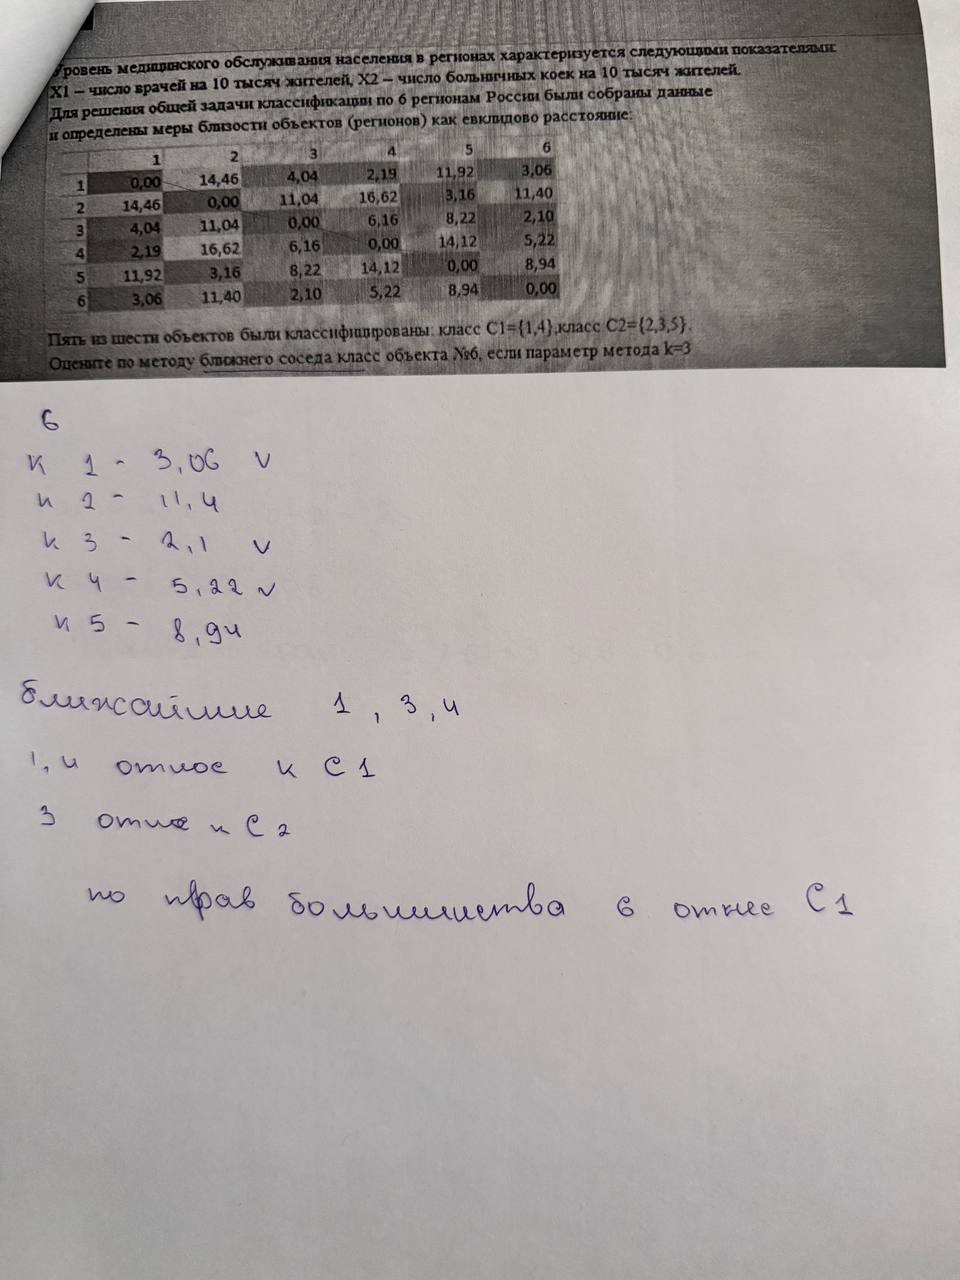 Уровень медицинского обслуживания населения в регионах характеризуется следующими показателями:
X1 – число врачей на 10 тысяч жителей, X2 – число больничных коек на 10 тысяч жителей.
Для решения общей задачи классификации по 6 регионам России были собраны данные
и определены меры близости объектов (регионов) как евклидово расстояние:
1 2 3 4 5 6
1 0,00 14,46 4,04 2,19 11,92 3,06
2 14,46 0,00 11,04 16,62 3,16 11,40
3 4,04 11,04 0,00 6,16 8,22 2,10
4 2,19 16,62 6,16 0,00 14,12 5,22
5 11,92 3,16 8,22 14,12 0,00 8,94
6 3,06 11,40 2,10 5,22 8,94 0,00
Пять из шести объектов были классифицированы: класс C1={1,4},класс C2={2,3,5}.
Оцените по методу ближнего соседа класс объекта №6, если параметр метода k=3
6
к 1 - 3,06 v
к 2 - 11,4
к 3 - 2,1 v
к 4 - 5,22 v
к 5 - 8,94
ближайшие 1, 3, 4
1,4 относ к C1
3 относ к C2
по прав большинства 6 отнес C1